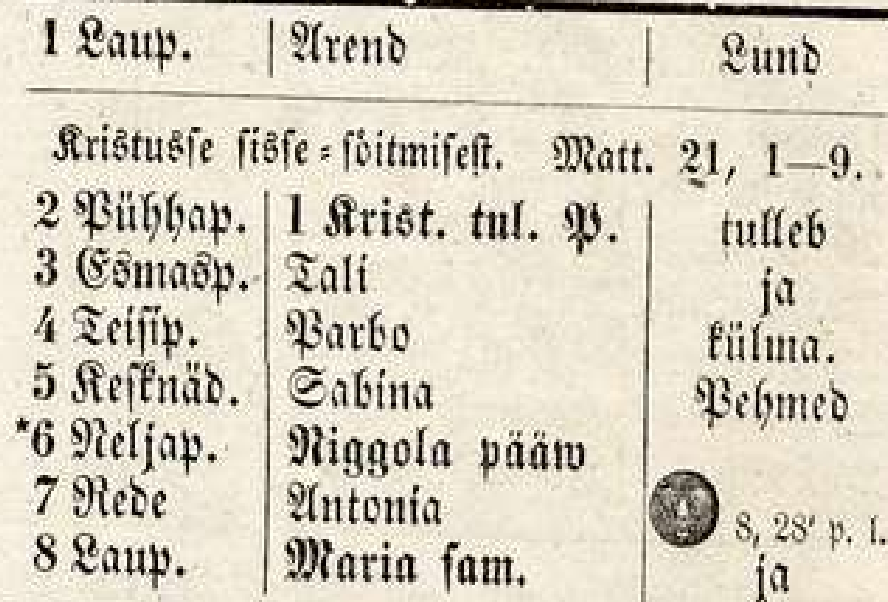 1 Laup. | Arend | Lund
Kristusse sisse-sõitmisest. Matt. 21, 1—9.
2 Pühhap. | 1 Krist. tul. P. | tulleb
3 Esmasp. | Tali | ja
4 Teisip. | Barbo | külma.
5 Kesknäd. | Sabina | Pehmed
*6 Neljap. | Niggola pääw
7 Rede | Antonia | 8, 28' p. l.
8 Laup. | Maria sam. | ja